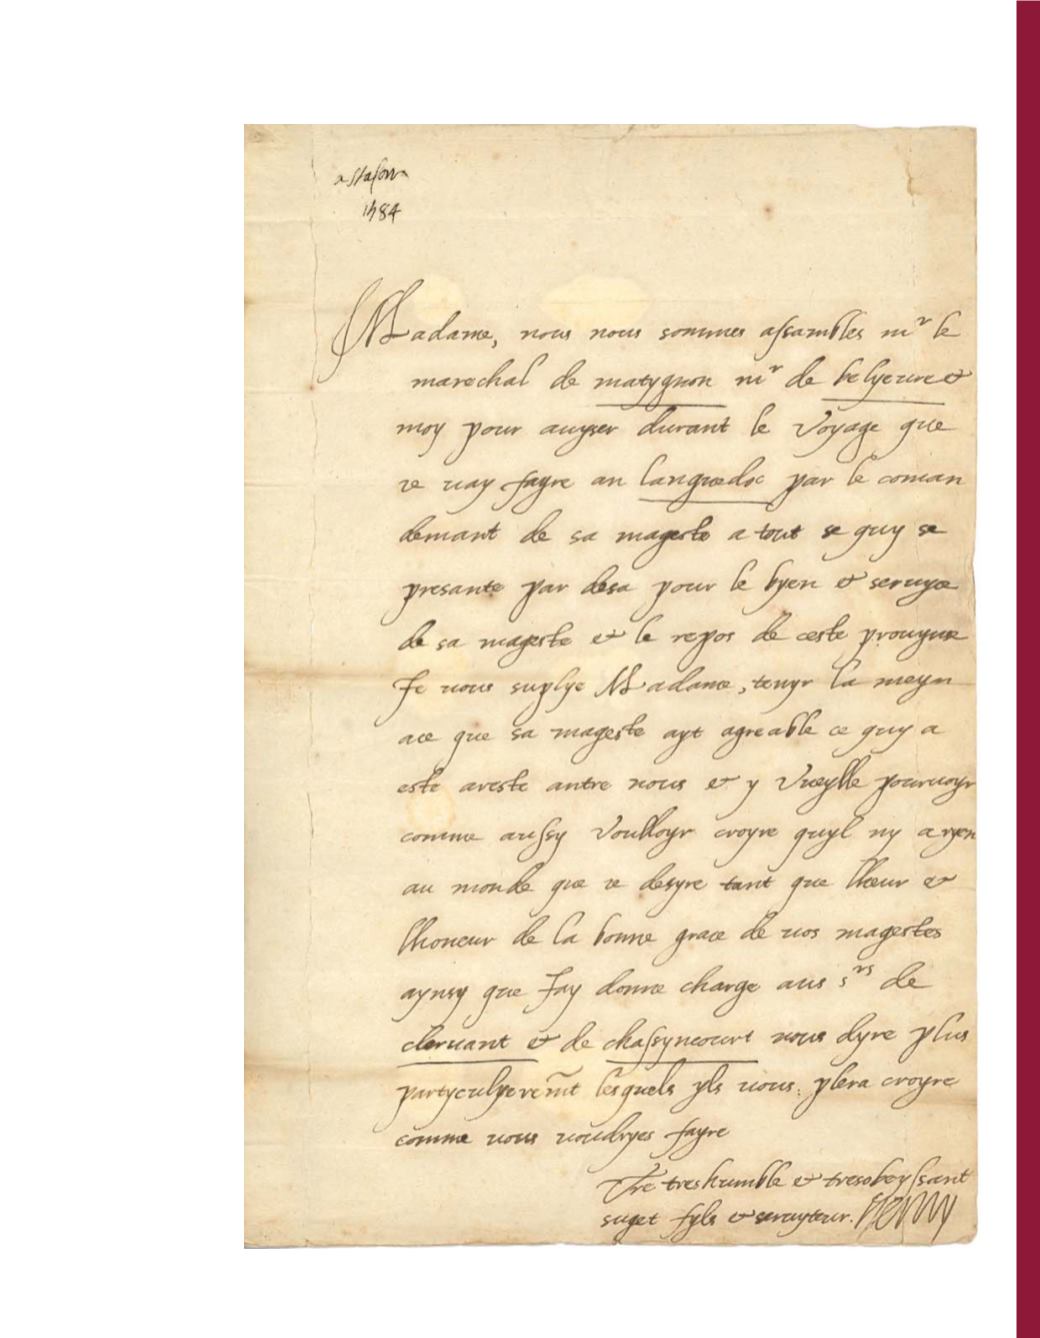 a stafort
1584
Madame, nous nous sommes assambles mr le
marechal de matygnon mr de belyeure et
moy pour auyser durant le voyage que
ie vay fayre an languedoc par le coman
demant de sa mageste a tout se quy se
presante par desa pour le byen et seruyce
de sa mageste et le repos de ceste prouynce
Je vous suplye Madame, tenyr la meyn
ace que sa mageste ayt agreable ce quy a
este areste antre nous et y vueylle pouruoyr
comme aussy voulloyr croyre quyl ny a ryen
au monde que ie desyre tant que lheur et
lhoneur de la bonne grace de vos magestes
aynsy que Jay donne charge aus srs de
cleruant et de chassyncourt vous dyre plus
partyculyeremt lesquels yls vous plera croyre
comme vous voudryes fayre
Vre treshumble et tresobeyssant
suget fyls et seruyteur. Henry